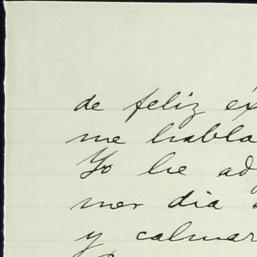 de feliz éx
me habla
Yo he ad
mer dia
y calmar